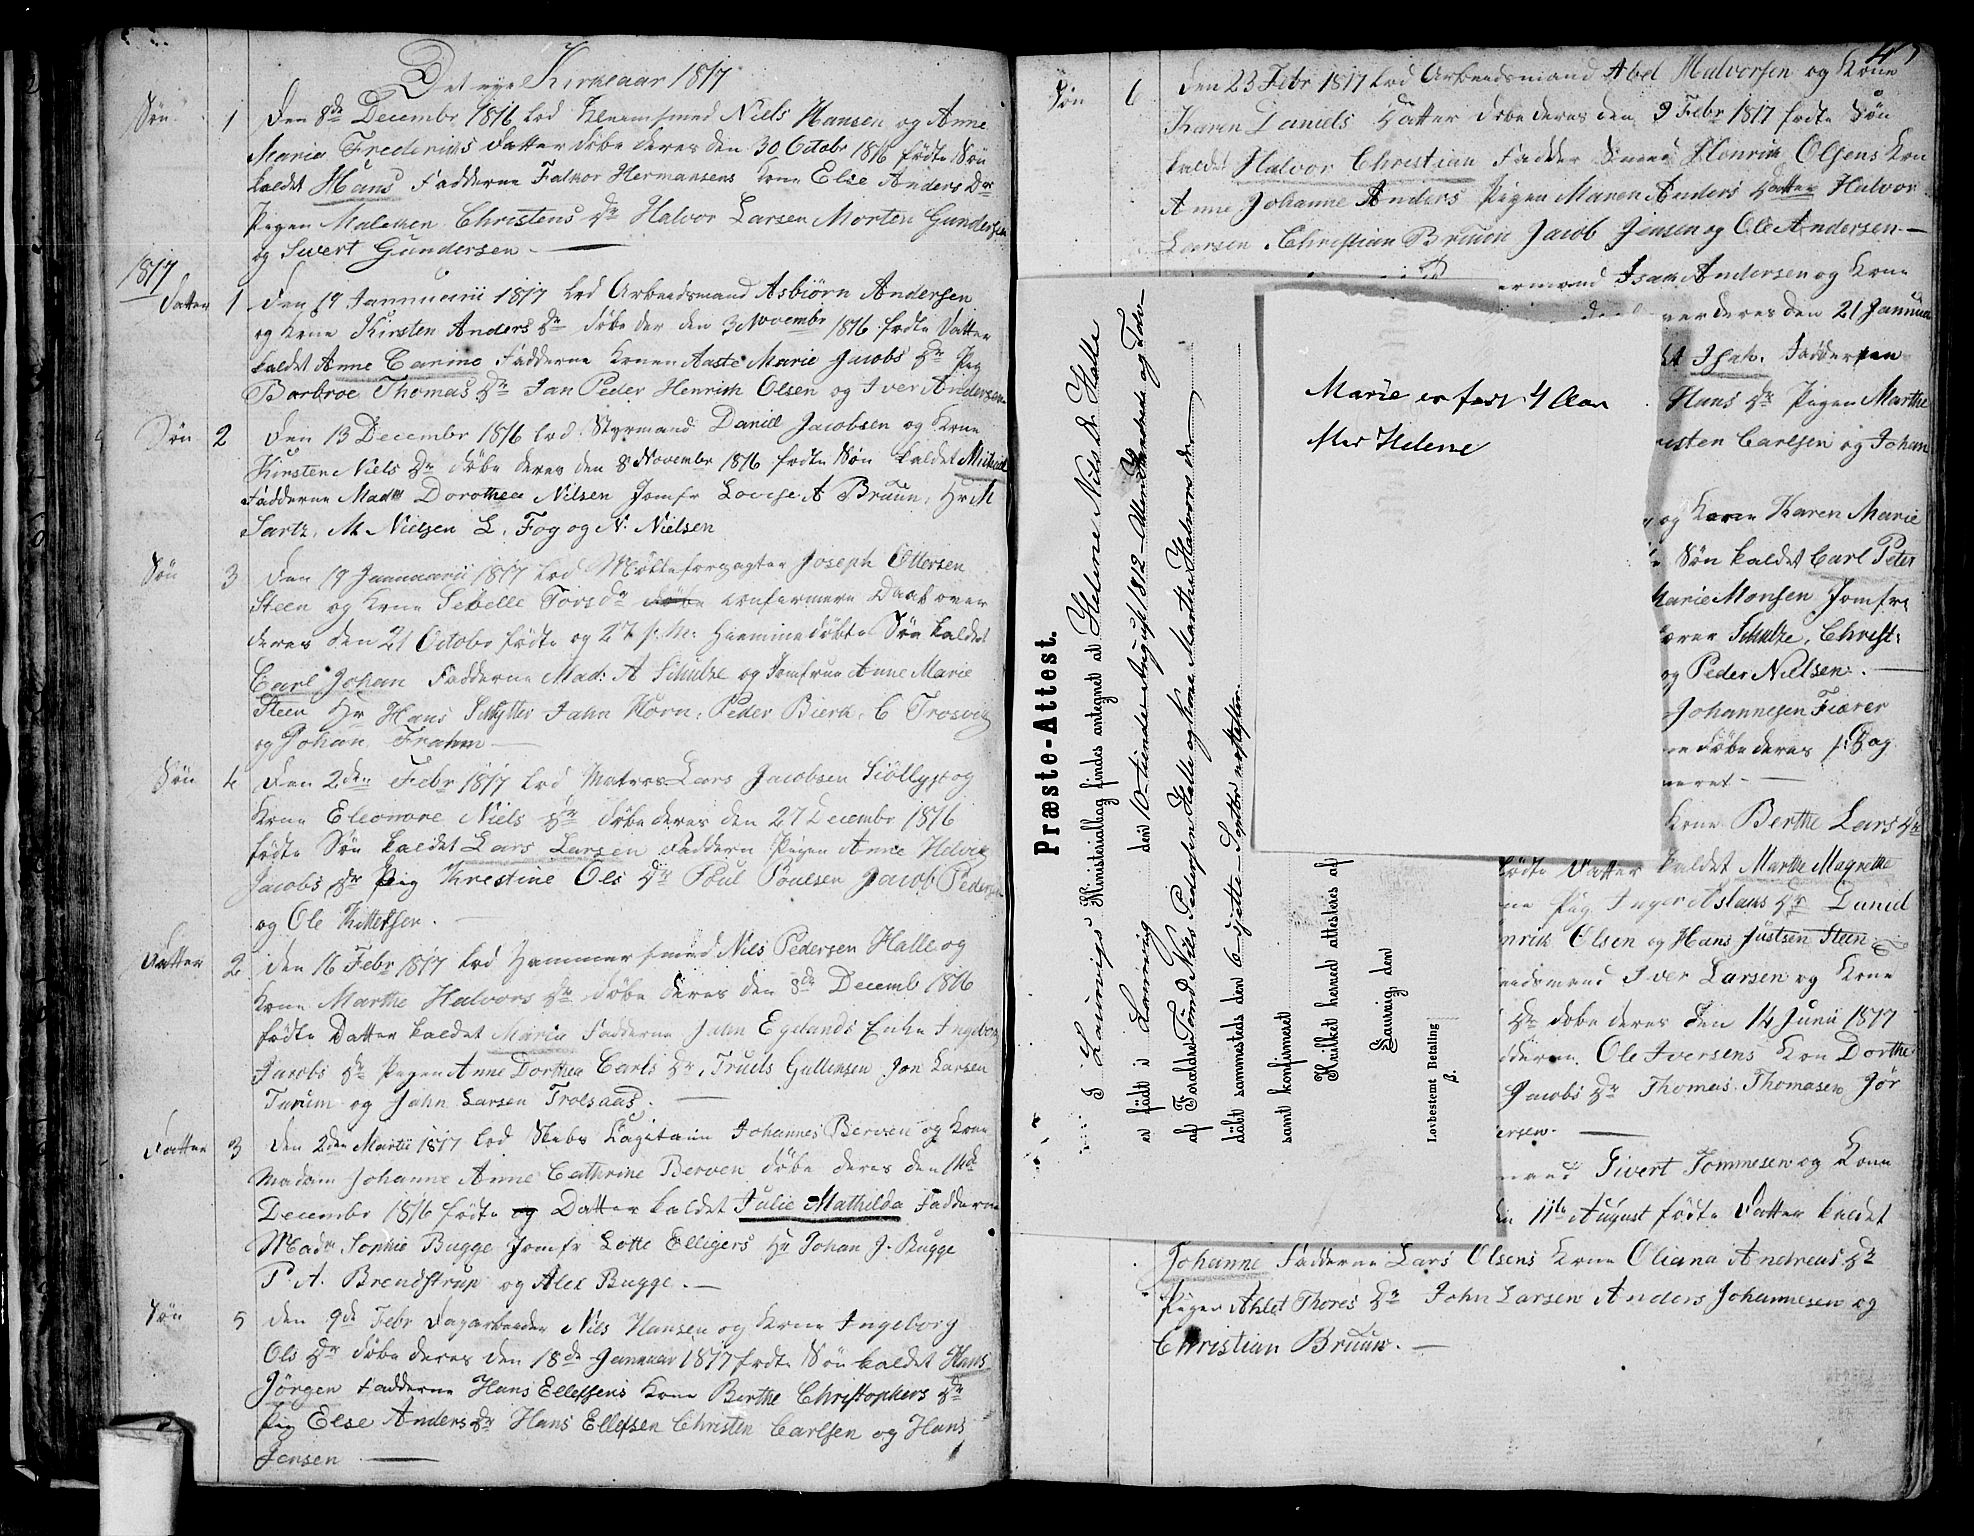 Det nye Kirkeaar 1817
Søn 1 Den 8de Decembr 1816 lod Kleensmed Niels Hansen og Anne
Maria Fredriks Datter døbe deres den 30 Octobr 1816 fødte Søn
kaldet Hans Fadderne Halvor Hermansens Kone Else Anders Dr
Pigen Malehen Christens Dr Halvor Larsen Morten Gundersen
og Sivert Gundersen
1817
Datter 1 Den 19 Januarii 1817 lod Arbeidsmand Asbiörn Andersen
og Kone Kirsten Anders Dr døbe der den 3 Novembr 1816 fødte Datter
kaldet Anne Carine Fadderne Konen Aaste Marie Jacobs Dr Pig
Barbroe Thomas Dr Jan Peder Henrich Olsen og Iver Andersen
Søn 2 Den 13 Decembr 1816 lod Styrmand Daniel Jacobsen og Kone
Kirstene Niels Dr døbe deres den 8 Novembr 1816 fødte Søn kaldet Michael
Fadderne Madm Dorothea Nilsen Jomfr Lovise A Bruun, Hr M
Sartz, M. Nielsen L. Fog og N. Nielsen
Søn 3 Den 19 Januarii 1817 lod Mølleforpagter Joseph Ottersen
Steen og Kone Sebelle Torsdr døbe confermere Daab over
deres den 21 Octobr fødte og 27 s: M: hiemmedøbte Søn kaldet
Carl Johan Fadderne Mad: A Schulze og Jomfrue Anne Marie
Steen Hr Hans Schytter Jahn Horn, Peder Bierk, C Trosvig
og Johan Frahm
Søn 4 Den 2den Febr 1817 lod Matros Lars Jacobsen Siöllyst og
Kone Eleonore Niels Dr døbe deres den 27 Decembr 1816
fødte Søn kaldet Lars Larsen Faddern Pigen Anne Helvig
Jacobs Dr Pig Krestine Ols Dr Poul Poulsen Jacob Pedersen
og Ole Kittelsen.
Datter 2 Den 16 Febr 1817 lod Hammersmed Nils Pedersen Halle og
Kone Marthe Halvors Dr døbe deres den 8de Decemb 1816
fødte Datter kaldet Maria Fadderne John Egelands Enke Ingebor
Jacobs Dr Pigen Anne Dorthea Carls Dr, Truels Gullensen Jon Larsen
Turum og Jahn Larsen Trolsaas.
Datter 3 Den 2den Martii 1817 lod Skibs Capitain Johannes Berven og Kone
Madam Johanne Anne Cathrine Berven døbe deres den 14de
Decembr 1816 fødte og Datter kaldet Julie Mathilda Fadderne
Madm Sophie Bugge Jomfr Lotte Elligers Hr Johan J. Bugge
P. A. Brendstrup og Alex Bugge.
Søn 5 Den 9de Febr Dagarbeider Nils Hansen og Kone Ingeborg
Ols Dr døbe deres den 18de Januar 1817 fødte Søn kaldet Hans
Jörgen Fadderne Hans Ellefsens Kone Berthe Christophers Dr
Pig Else Anders Dr Hans Ellefsen Christen Carlsen og Hans
Jensen
Søn 6 Den 23 Febr 1817 lod Arbeidsmand Abel Halvorsen og Kone
Karen Daniels Datter døbe deres den 9 Febr 1817 fødte Søn
kaldet Halvor Christian Fadder Smed Henrich Olsens Kon
Anne Johanne Anders Pigen Maren Anders Datter Halvor
Larsen Christian Bruun Jacob Jensen og Ole Andersen
ermand Isach Andersen og Kone
ver deres den 21 Januar
Isak. Fadderen
Hans Dr Pigen Marthe
Carlsen og Johan
og Kone Karen Marie
Søn kaldet Carl Peter
Marie Monsen Jomfr
Schulze, Christ:
og Peder Nielsen.
Johannesen Fiærer
døbe deres
Kone Berthe Lars Dr
fødte Datter kaldet Marthe Magrethe
Pig Inger Aslaus Dr Daniel
Olsen og Hans Justsen Steen
Iver Larsen og Kone
Dr døbe deres den 14 Junii 1817
Ole Iversens Kon Dorthe
Jacobs Dr Thomas Thomasen Jör
ersen.
Sivert Tommesen og Kone
11te August fødte Datter kaldet
Johanne Fadderne Lars Olsens Kone Oliana Andreas Dr
Pigen Ahlet Thores Dr John Larsen Anders Johannesen og
Christian Bruun.
Præste-Attest.
I Laurvigs Ministerialbog findes antegnet at Helene Nils Dr. Halle
er født i Laurvig den 10-tiende August 1812-Atten Hundrede og Tolv-
af Forældre Smed Nils Pedersen Halle og Kone Marthe Halvors dr
døbt sammesteds den 6-sjette-Septbr næstefter.
samt konfirmeret
Hvilket herved attesteres af
Laurvig, den
Lovbestemt Betaling
β.
Marie er født 4 Aar
Helene